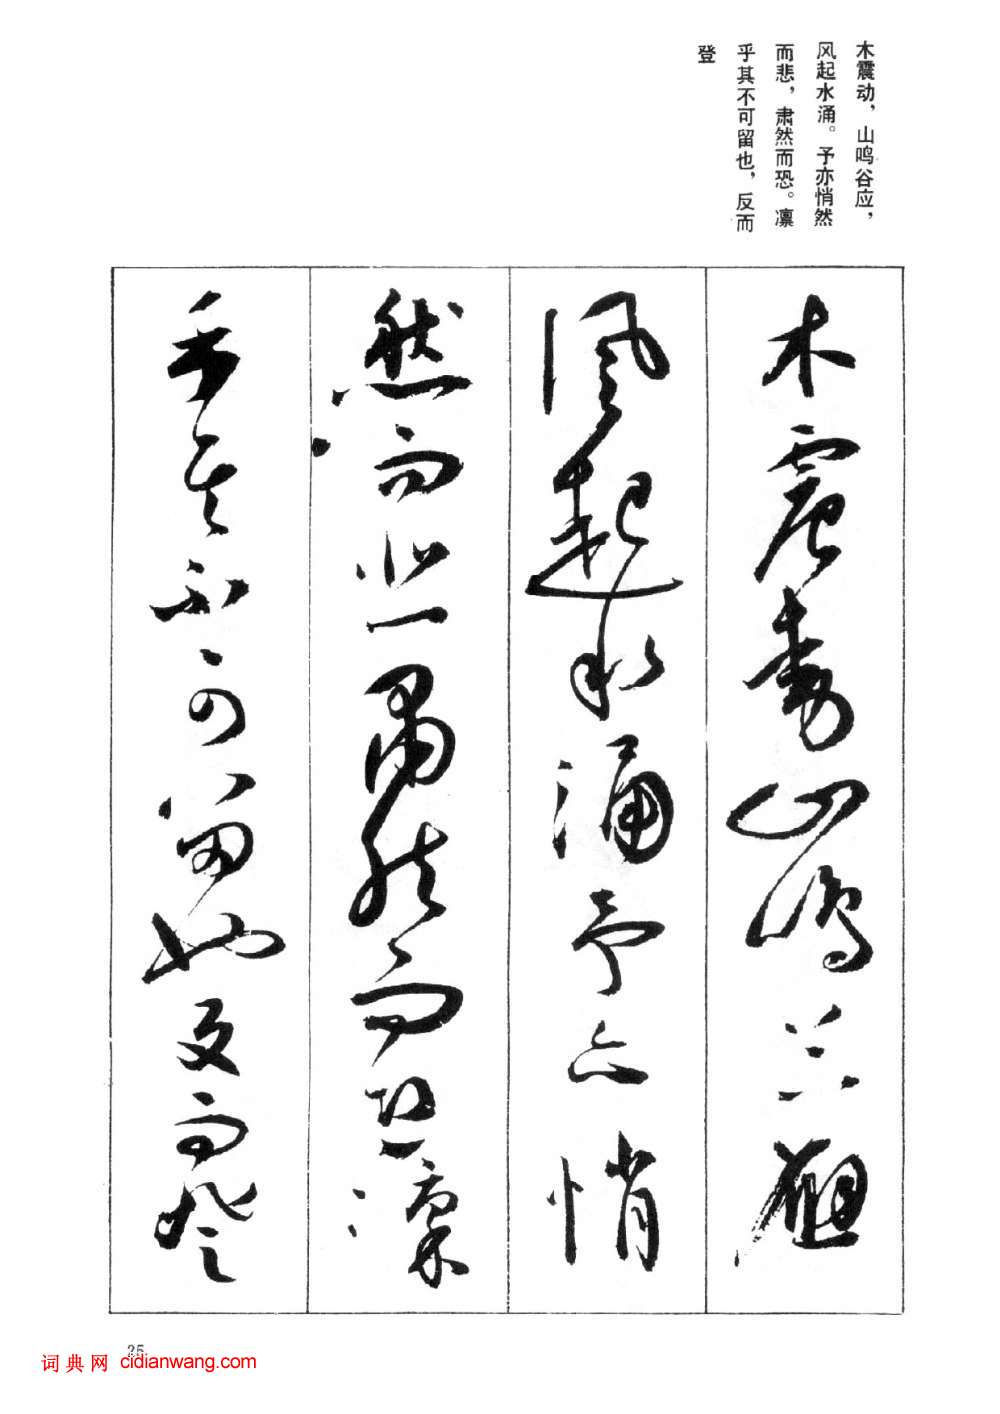 木震动，山鸣谷应，
风起水涌。予亦悄然
而悲，肃然而恐。凛
乎其不可留也，反而
登
木震動山鳴谷應
風起水涌予亦悄
然而悲肅然而恐凛
乎其不可留也反而登
25
词典网 cidianwang.com